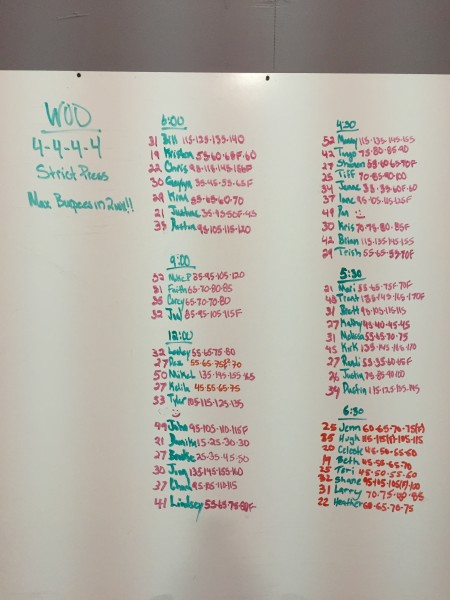 WOD
4-4-4-4
Strict Press
Max Burpees in 2 mins!!
6:00
31 Bill 115-125-135-140
19 Kristen 55-60-65F-60
22 Chris
30
29 Kim 55-65-60-70
21
35 Dustin 95-105-115-120
9:00
32 Mike P 85-95-105-120
31 Faith 65-70-80-85
35 Corey 65-70-70-80
32 85-95-105-115F
12:00
32 Lesley 55-65-75-80
27 55-65-75F-70
50 135-145-155-165
27 Kelik 45-55-65-75
33 Tyler 105-115-125-135
49 John 95-105-110-115F
21 15-25-30-30
27 Brooke 25-35-45-50
30 135-145-155-160
37 95-105-110-115
41 Lindsey 55-65-75-80F
4:30
52 Manny 115-135-145-155
42 75-80-85-90
27 Shannon 55-60-65-70F
25 Tiff 70-85-90-100
54
37 Jane 95-105-115-125F
49 Pam
30 Kris 70-75-80-85F
42 Brian 115-135-145-155
29 Trish 55-65-55-70F
5:30
21 Mari 55-65-75F-70F
40 Trent
31 Brett 95-105-115-115
27 Kathy 35-40-45-45
31 Melissa 55-65-70-75
45 Kirk 135-145-165-170
27 Randi 55-55-60-65F
26 Justin 75-85-90-100
39 Dustin 115-125-135-145
6:30
25 Jenn 60-65-70-75(F)
35 Hugh 115-115(F)-105-115
20 Celeste 45-50-55-50
19 Beth 45-55-65-70
25 Tori 45-50-55-60
32 Shane 95-105-105(F)-100
31 Larry 70-75-80-85
22 Heather 60-65-70-75